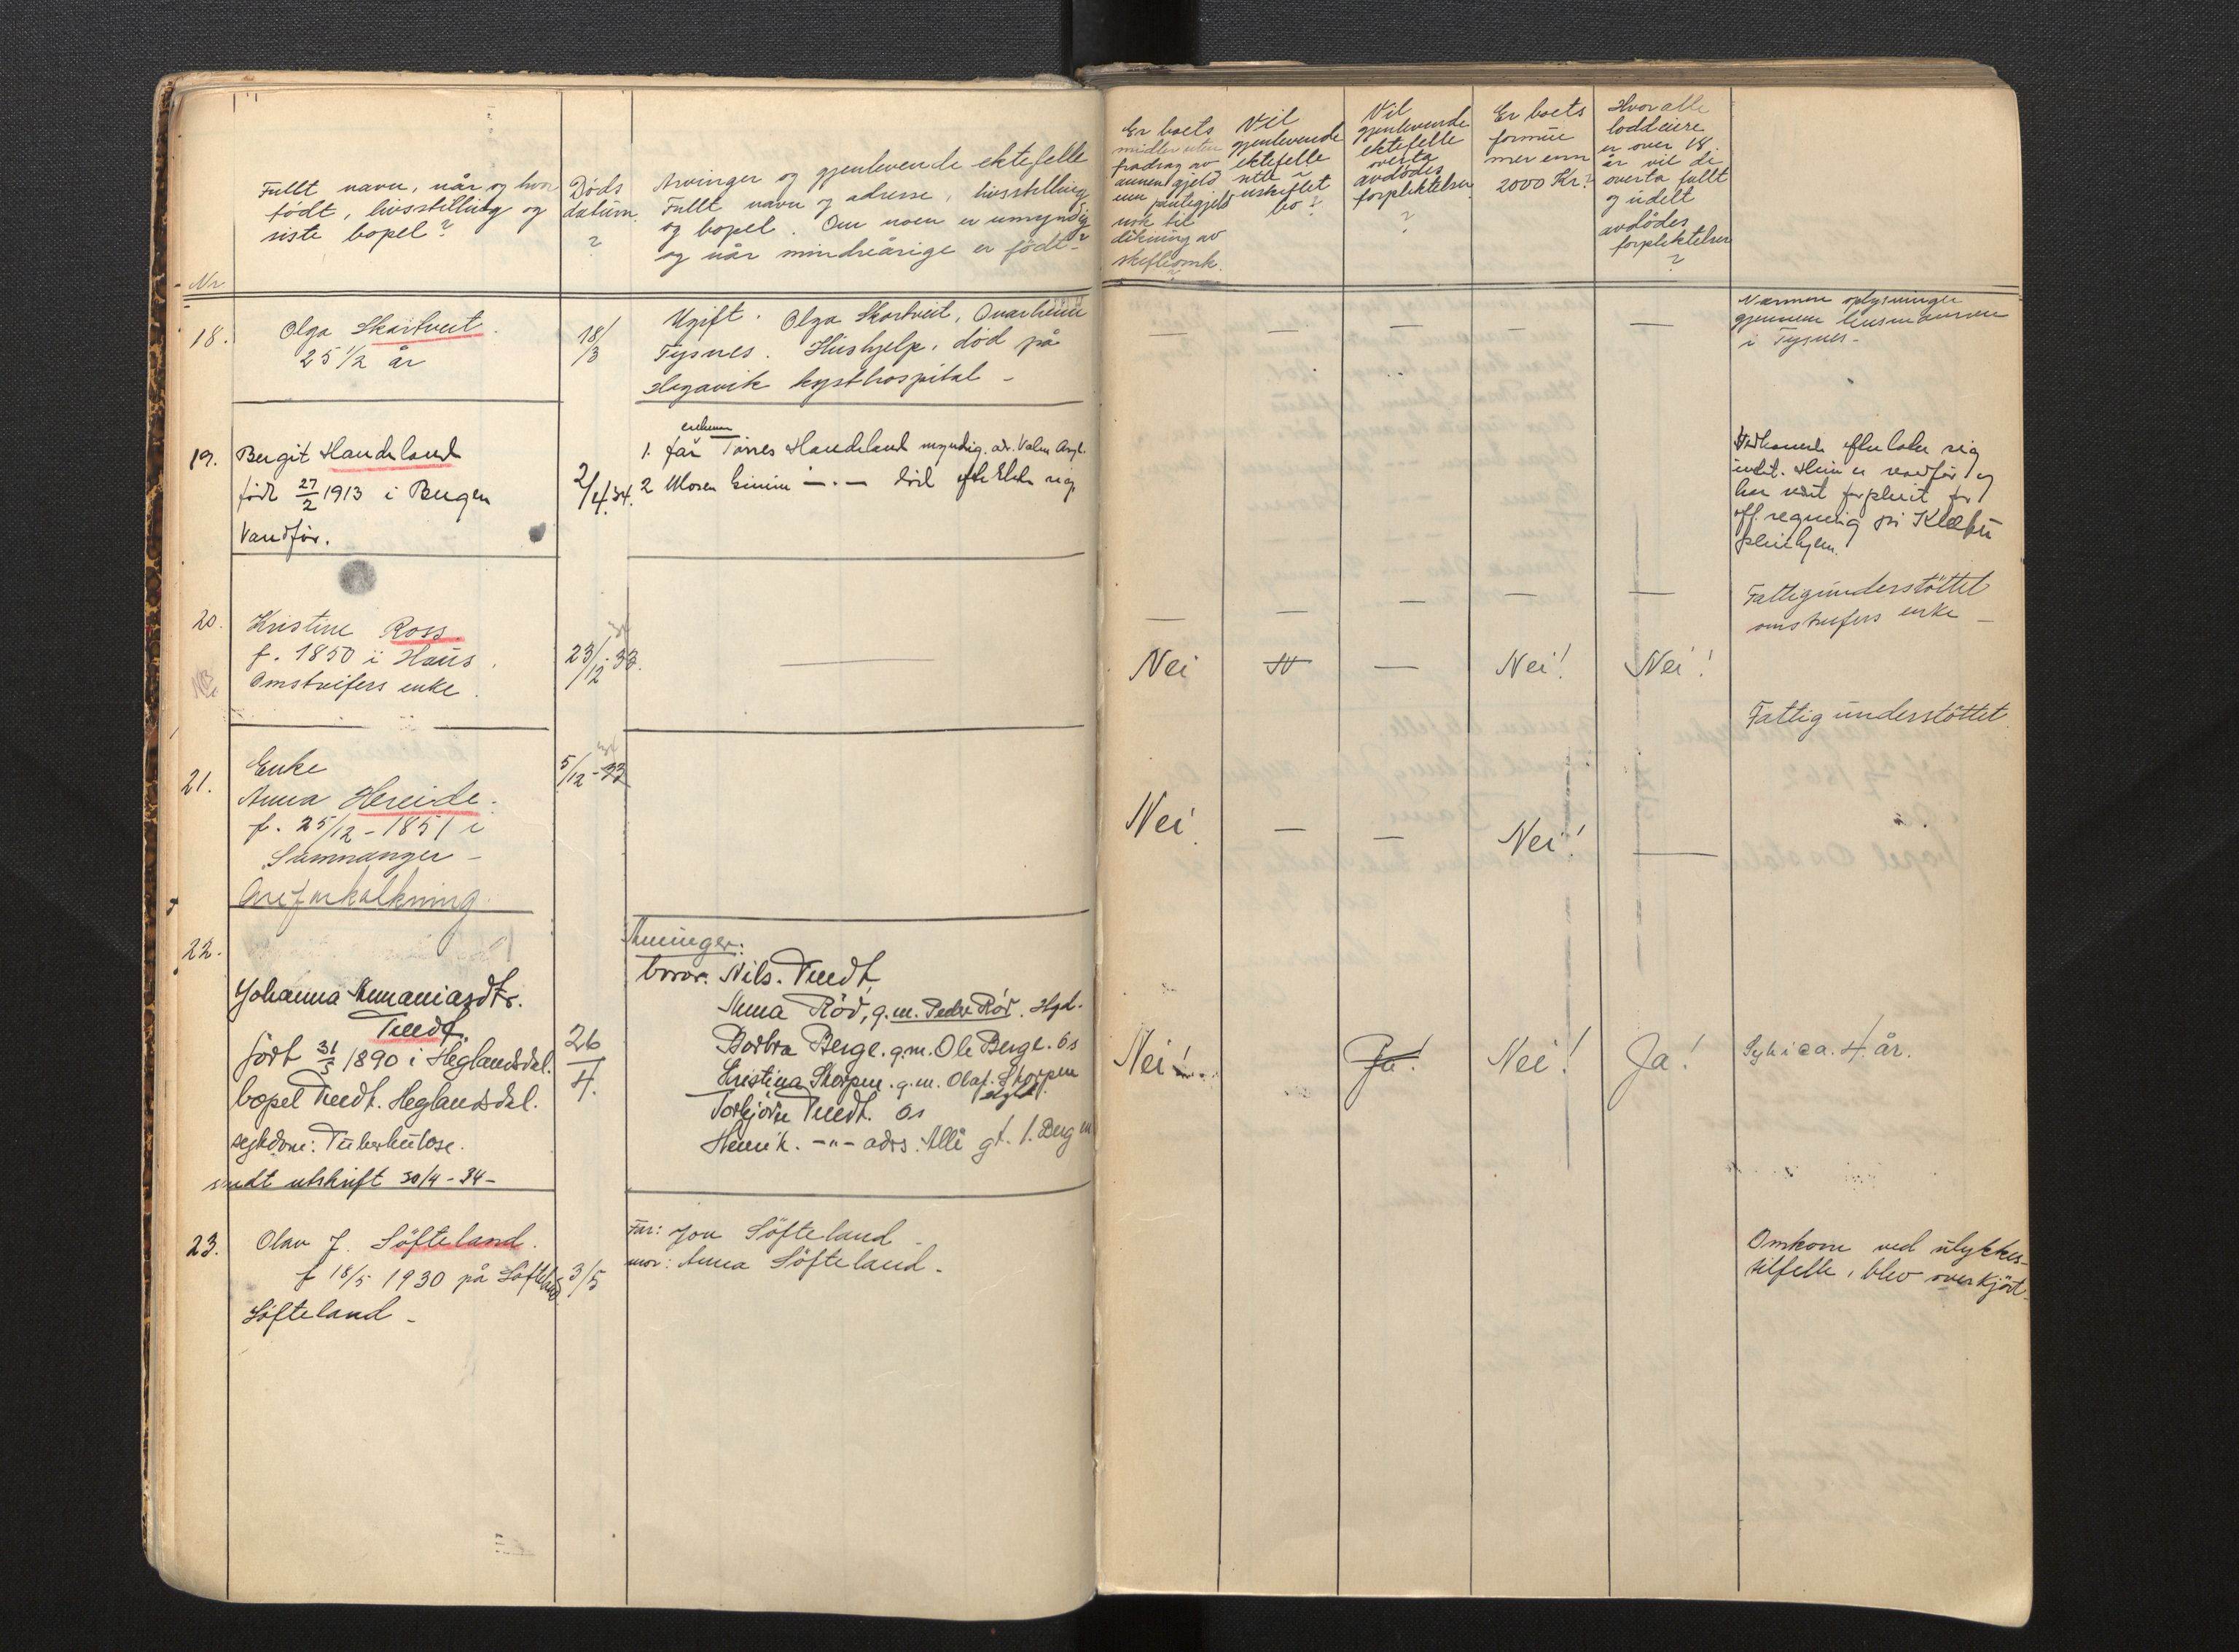 Nr
Fullt navn, når og hvor
født, livsstilling og
siste bopel?
Døds
datum
?
Arvinger og gjenlevende ektefelle
Fullt navn og adresse, livsstilling
og bopel. Om noen er umyndig
og når mindreårige er født?
Er boets
midler uten
fradrag av
annen gjeld
enn pantegjeld
nok til
dekning av
skifteomk.
?
Vil
gjenlevende
ektefelle
sitte i
uskiftet
bo?
Vil
gjenlevende
ektefelle
overta
avdødes
forpliktelser
?
Er boets
formue
mer enn
2000 Kr?
Hvor alle
loddeiere
er over 18
år vil de
overta fullt
og udelt
avdødes
forpliktelser
?
18.
Olga Skartveit.
25 1/2 år
18/3
Ugift. Olga Skartveit, Onarheim
Tysnes. Hushjelp, død på
Hagavik kysthospital -
— — — — —
Nærmere oplysninger
gjennem lensmannen
i Tysnes-
19.
Bergit Handeland
født 27/2 1913 i Bergen
Vandför.
2/4.34.
1. får Törres Handeland myndig. adr. Valen
2 Moren —.— död
efterlater sig
intet. Hun er vandför og
har vært forpleiet for
off. regning på
pleiehjem.
20.
Kristine Ross.
f. 1850 i Haus.
Omstreifers enke.
23/12-33.
—
— — — — —
Nei N — Nei! Nei!
Fattigunderstöttet
omstreifers enke -
21.
Enke
Anna Hereide.
f. 25/12-1851 i
Samnanger -
Åreforkalkning.
5/12-33
Nei — — Nei! —
Fattigunderstöttet.
22.
Johanna Ananiasdtr.
Tveidt
født 31/3 1890 i Heglandsdal.
bopel Tveidt. Heglandsdal.
sykdom: Tuberkulose.
sendt utskrift 30/4-34-
26/4.
Arvinger:
bror: Nils. Tveidt
Anna Röd, g.m. Peder Röd.
Borbra Berge. g.m. Ole Berge. Os
Kristina Skorpen. g.m. Olaf. Skorpen
Torbjörn Tveidt. Os
Henrik. -"- adrs.
Nei! Ja! Nei! Ja!
Syk i ca. 4 år.
23.
Olav J. Söfteland.
f 18/5 1930 på Söfteland
Söfteland -
3/5
Far: Jon Söfteland -
mor: Anna Söfteland -
Omkom ved ulykkes-
tilfelle, blev overkjört.